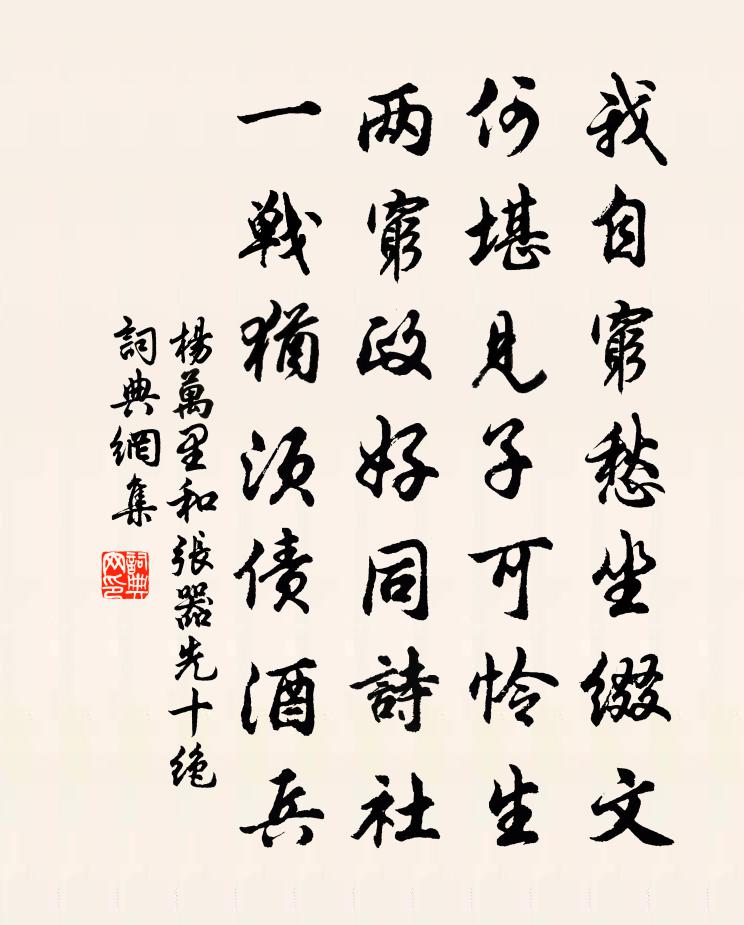 我自窮愁坐綴文
何堪見子可怜生
两窮政好同詩社
一戦猶須债酒兵
楊萬里和張器先十绝
詞典網集
詞典網印